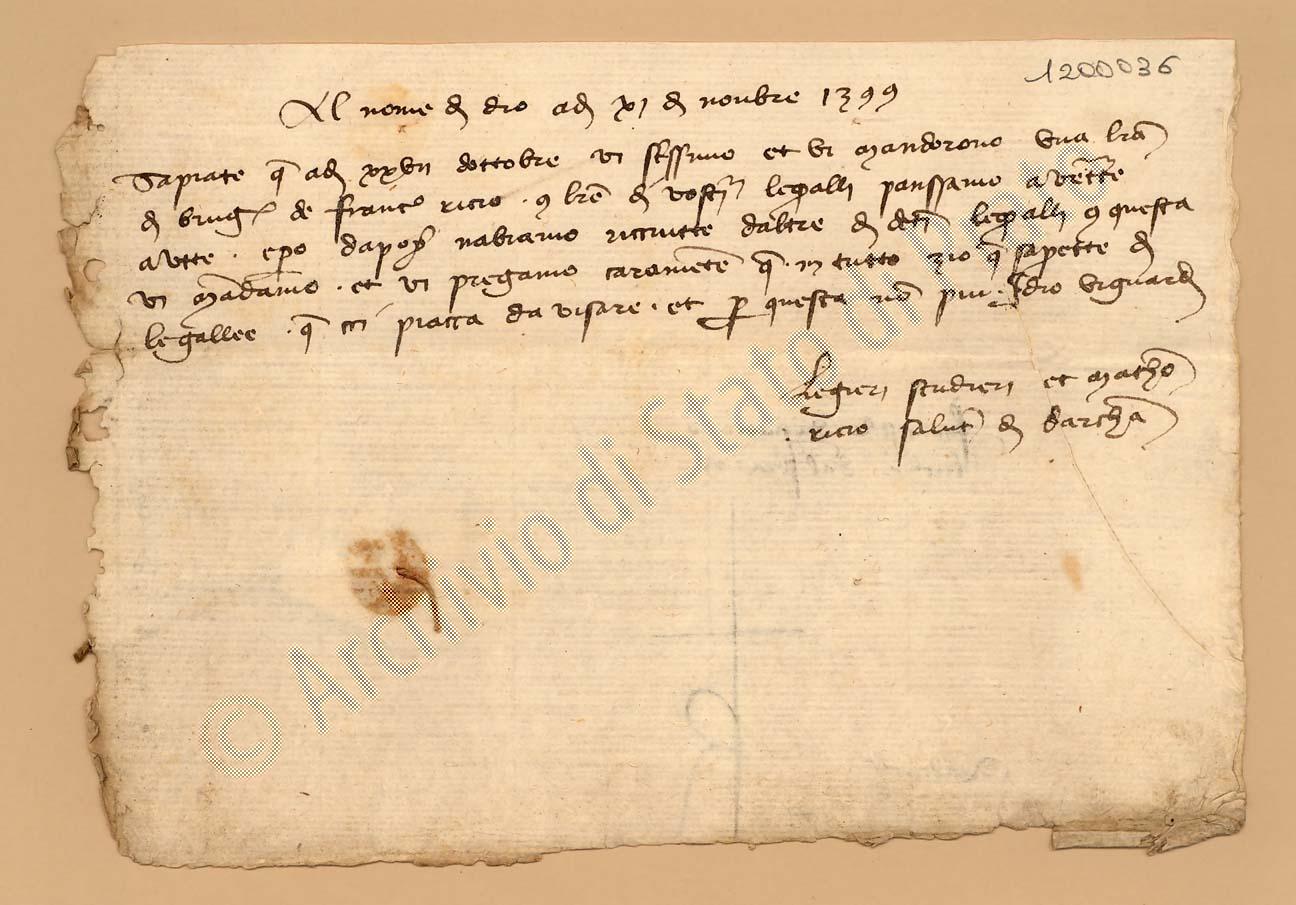 1200036
Al nome di dio adi xi di nonbre 1399
Sapiate che adi xxvii dottobre vi scrissimo et vi mandorono una lra
di brug de Franco ricio lre di vostri legalli panssamo avette
avtte epo dapoy nabiamo riccivtte daltre di detti legalli questa
vi mandiamo et vi pregamo caramete che in tutto zio che sapette di
legallee che ci piacca da visare et per questa no piu Idio vi guardi
Legieri scudieri et matheo
ricio salut di Barchna
© Archivio di Stato di Prato